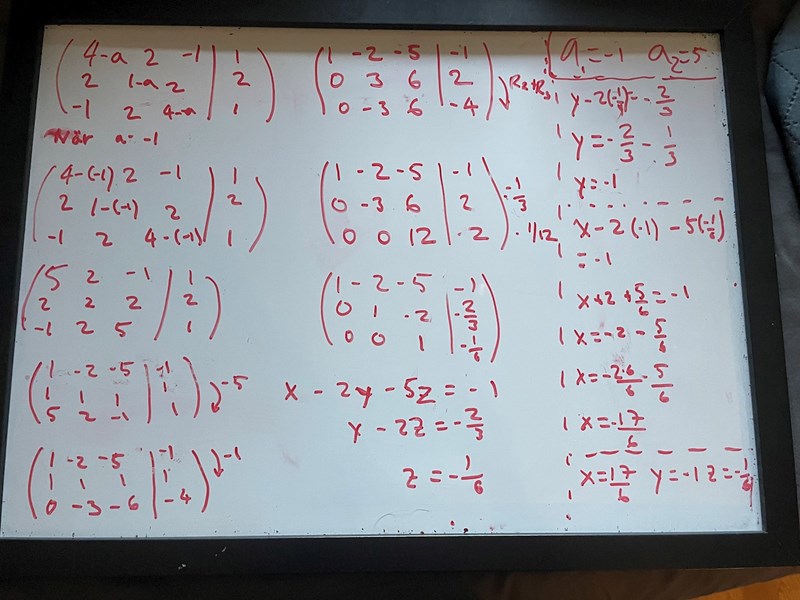 4-a 2 -1 | 1
2 1-a 2 | 2
-1 2 4-a | 1
När a=-1
4-(-1) 2 -1 | 1
2 1-(-1) 2 | 2
-1 2 4-(-1) | 1
5 2 -1 | 1
2 2 2 | 2
-1 2 5 | 1
1 -2 -5 | -1
1 1 1 | 1
5 2 -1 | 1
-5
1 -2 -5 | -1
1 1 1 | 1
0 -3 -6 | -4
-1
1 -2 -5 | -1
0 3 6 | 2
0 -3 6 | -4
R2+R3
1 -2 -5 | -1
0 -3 6 | 2
0 0 12 | -2
·-1/3
·1/12
1 -2 -5 | -1
0 1 -2 | -2/3
0 0 1 | -1/6
x - 2y - 5z = -1
y - 2z = -2/3
z = -1/6
a₁=-1 a₂=5
y-2(-1/6)=-2/3
y=-2/3-1/3
y=-1
x-2(-1)-5(-1/6)
=-1
x+2+5/6=-1
x=-2-5/6
x=-2·6/6-5/6
x=-17/6
x=17/6 y=-1 z=-1/6